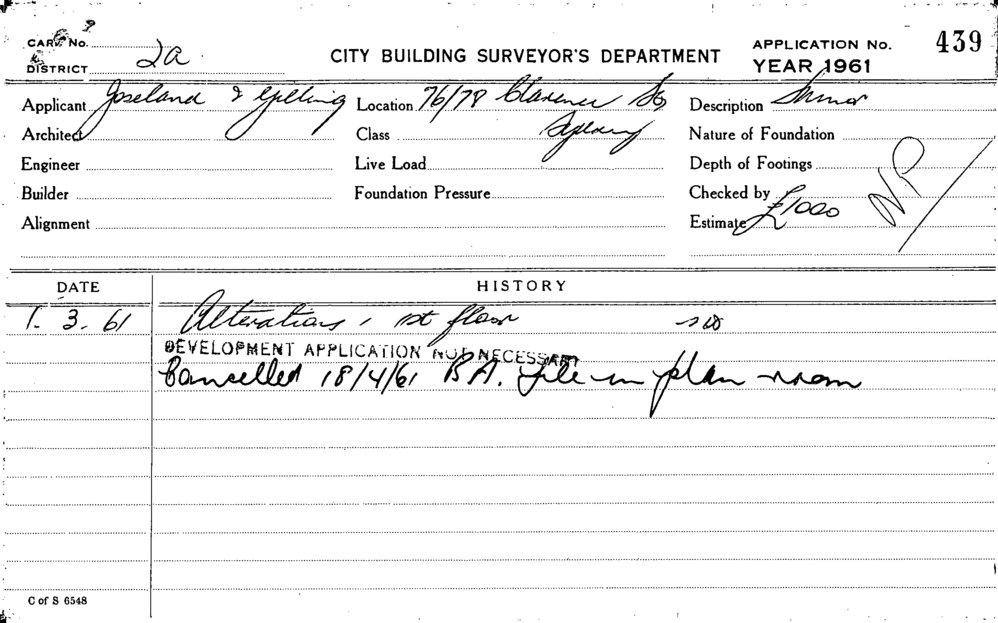 CARD No.
& DISTRICT 2a
CITY BUILDING SURVEYOR'S DEPARTMENT
APPLICATION No. 439
YEAR 1961
Applicant Joseland & Gilling
Location 76/78 Clarence St
Sydney
Description Minor
Architect
Class
Nature of Foundation
Engineer
Live Load
Depth of Footings
Builder
Foundation Pressure
Checked by
Alignment
Estimate £1000
NP
DATE
HISTORY
1. 3. 61 Alterations, 1st floor
DEVELOPMENT APPLICATION NOT NECESSARY
Cancelled 18/4/61 BA. file in plan room
C of S 6548